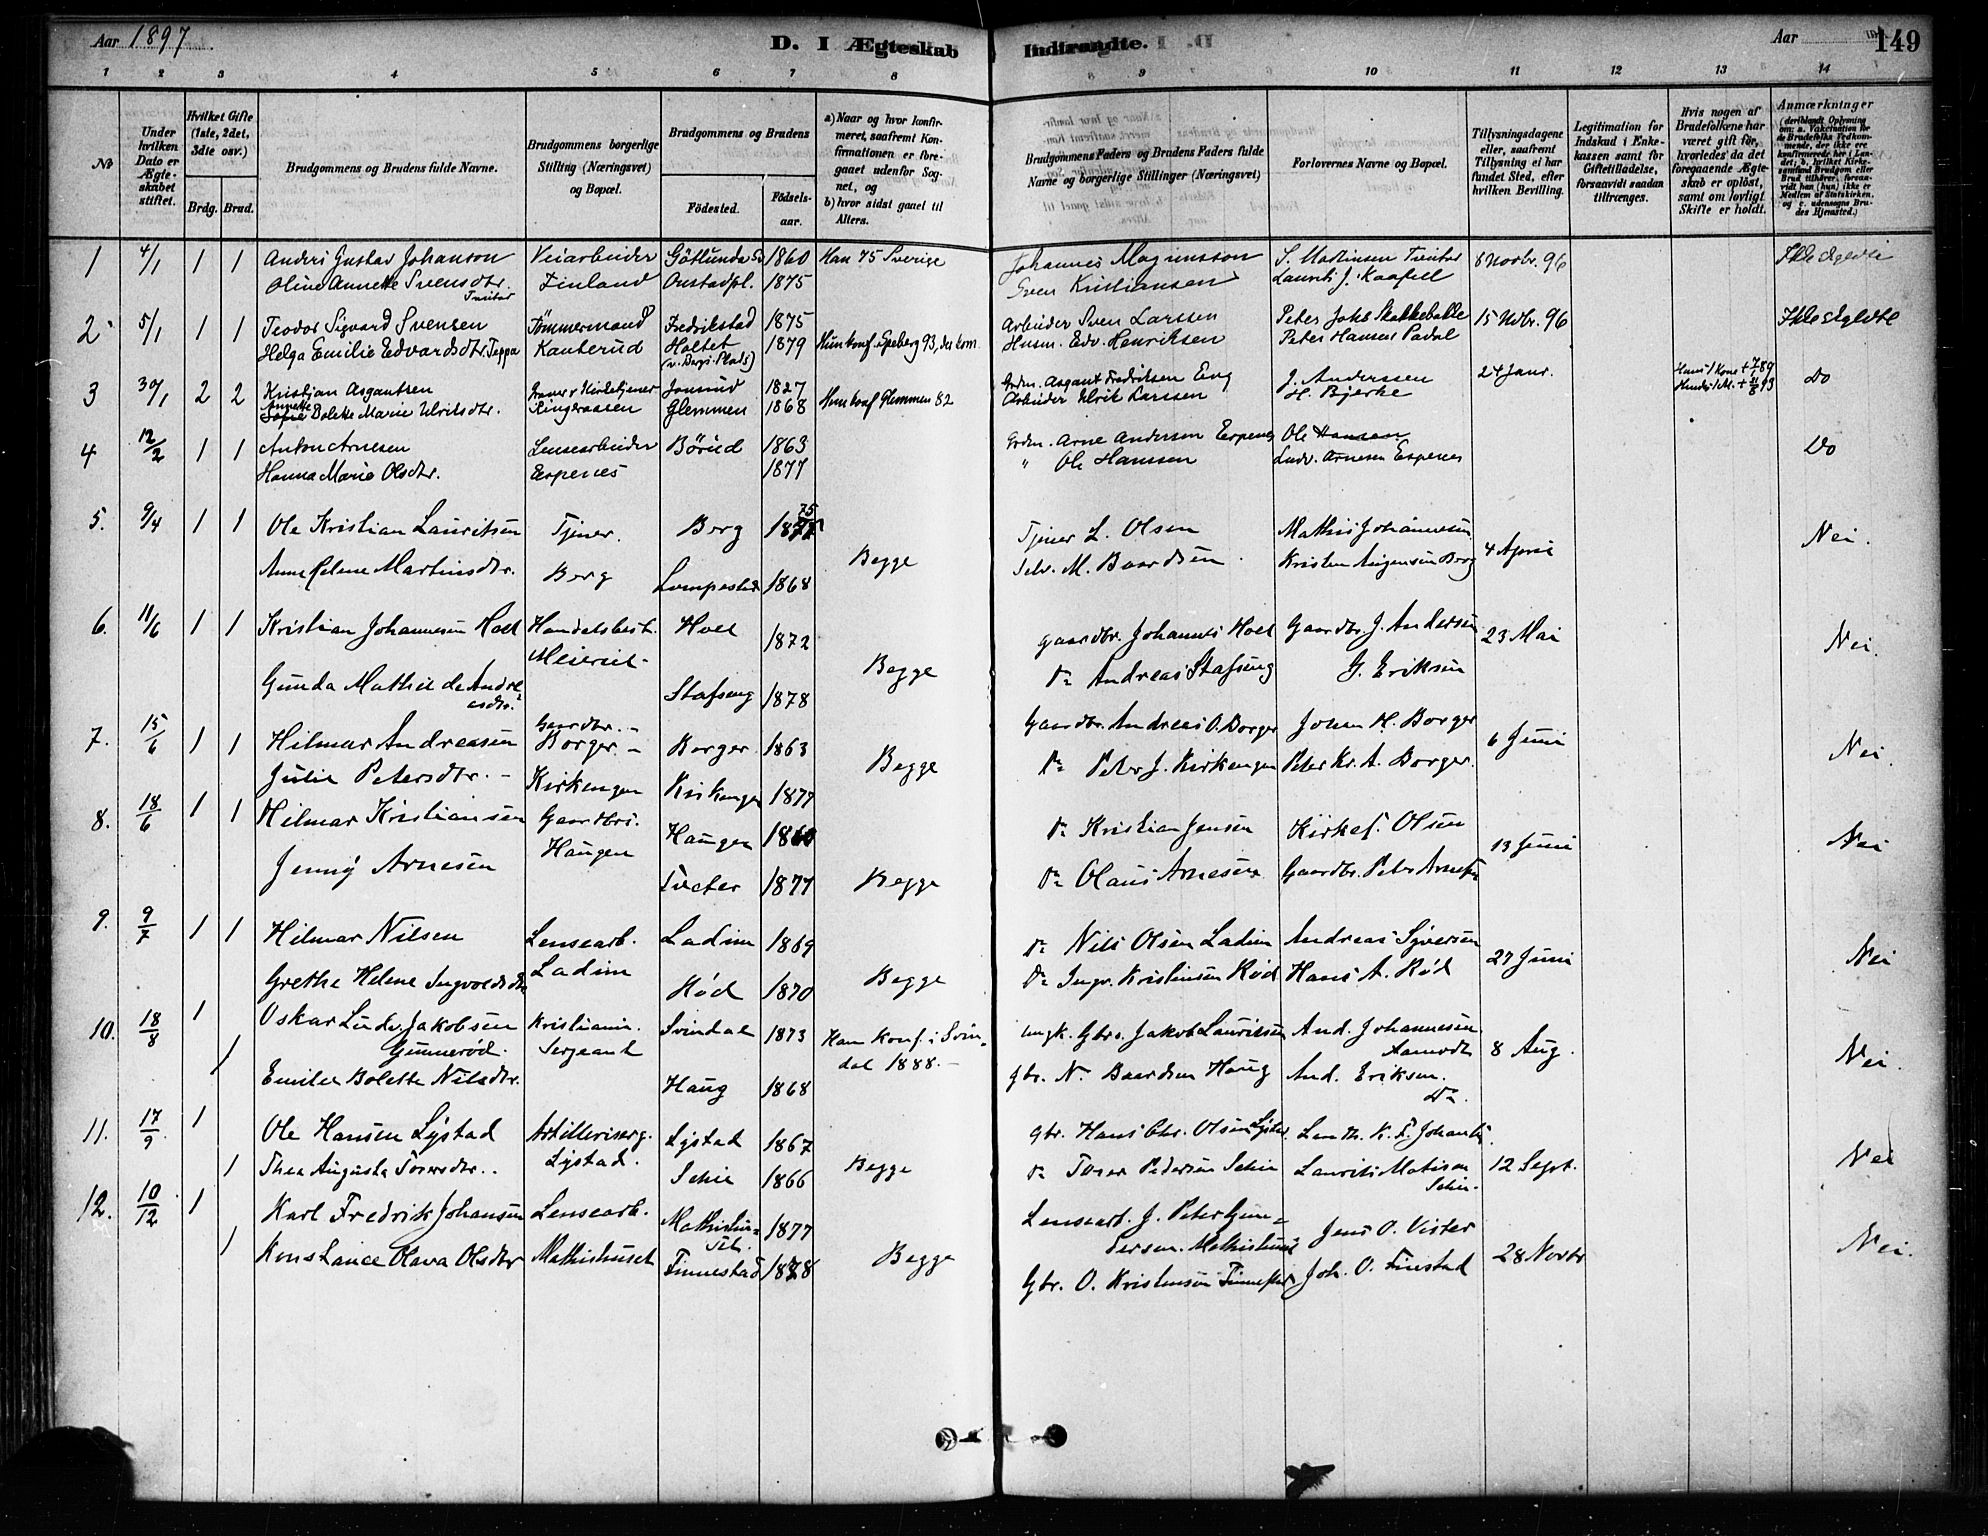 Aar 1897
D. I Ægteskab Indtraadte.
Aar
149
1 2 3 4 5 6 7 8 9 10 11 12 13 14
No
Under hvilken Dato er Ægteskabet stiftet.
Hvilket Gifte (1ste, 2det, 3die osv.)
Brdg. Brud.
Brudgommens og Brudens fulde Navne.
Brudgommens borgerlige Stilling (Næringsvei) og Bopæl.
Brudgommens og Brudens
Fødested.
Fødselsaar.
a) Naar og hvor konfirmeret, saafremt Konfirmationen er foregaaet udenfor Sognet, og
b) hvor sidst gaaet til Alters.
Brudgommens Faders og Brudens Faders fulde Navne og borgerlige Stillinger (Næringsvei)
Forlovernes Navne og Bopæl.
Tillysningsdagene eller, saafremt Tillysning ei har fundet Sted, efter hvilken Bevilling.
Legitimation for Indskud i Enkekassen samt for Giftetilladelse, forsaavidt saadan tiltrænges.
Hvis nogen af Brudefolkene har været gift før, hvorledes da det foregaaende Ægteskab er opløst, samt om lovligt Skifte er holdt.
Anmærkninger
1 4/1 1 1 Anders Gustav Johanson Veiarbeider Götlunda 1860 Han 75 Sverige Johannes Magnusson S. Martinsen 8 Novbr. 96 Ikke skyldte
Oline Annette Svensdtr. Finland Onstadpl. 1875 Sven Kristiansen Laurits J. Kaafjell
2 5/1 1 1 Teodor Sigvard Svensen Tømmermand Fredrikstad 1875 Arbeider Sven Larssen Peter Johs Skakkebakke 15 Novbr. 96 Ikke skyldte
Helga Emilie Edvardsdtr. Teppa Kanterud Holtet 1879 Hun konf. Speberg 93, Husm. Edv. Henriksen Peter Hansen
3 30/1 2 2 Kristian Asgautsen Graver & Kirketjener 1827 Hun konf Glemmen 82 Grdm. Asgaut Fredriksen Eng J. Anderssen 24 Janr. Do
Annette Bolette Marie Ulriksdtr. Ringeraasen Glemmen 1868 Arbeider Ulrik Larssen H. Bjerke
4 12/2 1 1 Anton Arnesen Lensearbeider Börud 1863 Grdm. Arne Andersen Espenes Ole Hansen Do
Hanna Marie Olsdtr. Espenes 1877 " Ole Hanssen Ludv. Arnesen Espenes
5. 9/4 1 1 Ole Kristian Lauritsen Tjener. Berg 1875 Tjener L. Olsen Mathis Johannesen Nei.
Anne Helene Martinsdtr. Berg 1868 Begge Selv. M. Baardsen Kristen Berg 4 April
6. 11/6 1 1 Kristian Johannesen Hoel Handelsbest. Hoel 1872 Gaardbr. Johannes Hoel Gaardbr J. Andersen 23 Mai Nei.
Gunda Mathilde Andreasdtr. Meieriet Stafseng 1878 Begge Do Andreas Stafseng G. Eriksen
7. 15/6 1 1 Hilmar Andreasen Gaardbr. Borger Borger 1863 Gaardbr. Andreas O. Borger Johan H. Borger 6 Juni Nei.
Julie Petersdtr. Kirkengen Kirkengen 1877 Begge Do Peter J. Kirkengen Peter Kr. A. Borger.
8. 18/6 1 1 Hilmar Kristiansen Gaardbr. Haugen 1860 Do Kristian Jensen Kirkes. Olsen 13 Juni Nei
Jenny Arnesen Haugen Tveter 1877 Begge Do Olaus Arnesen Gaardbr. Peter Arnesen
9. 9/7 1 1 Hilmar Nilsen Lensearb. Ladim 1869 Do Nils Olsen Ladim Andreas Syversen 27 Juni Nei
Grethe Helene Ingvoldsdtr Ladim Rød 1870 Begge Do Ingv. Kristensen Rød Hans A. Rød
10. 18/8 1 Oskar Ludv. Jakobsen Gunnerød. Kristiania. Svindal 1873 Han konf. i Svindal 1888. Ungk. Gbr. Jakob Lauritsen And. Johannesen Aamodt 8 Aug. Nei.
1 Emilie Bolette Nilsdtr. Sergeant Haug 1868 Gbr. N. Baardsen Haug And. Eriksen. Do.
11. 17/9 1 Ole Hansen Lystad Artilleriserg. Lystad 1867 Gbr. Hans Chr. Olsen Lystad K. F. Johansen 12 Sept. Nei
1 Thea Augusta Toresdtr. Lystad. Schie 1866 Begge Do Torer Pedersen Schie Laurits Matisen Schie
12. 10/12 1 Karl Fredrik Johansen Lensearb. Mathishuset 1877 Lensearb. J. Peter Gundersen. Mathishuset Jens O. Vister 28 Novbr Nei.
1 Konstance Olava Olsdtr Mathishuset Finnestad 1878 Begge Gbr. O. Kristensen Finnestad Joh. O. Finstad